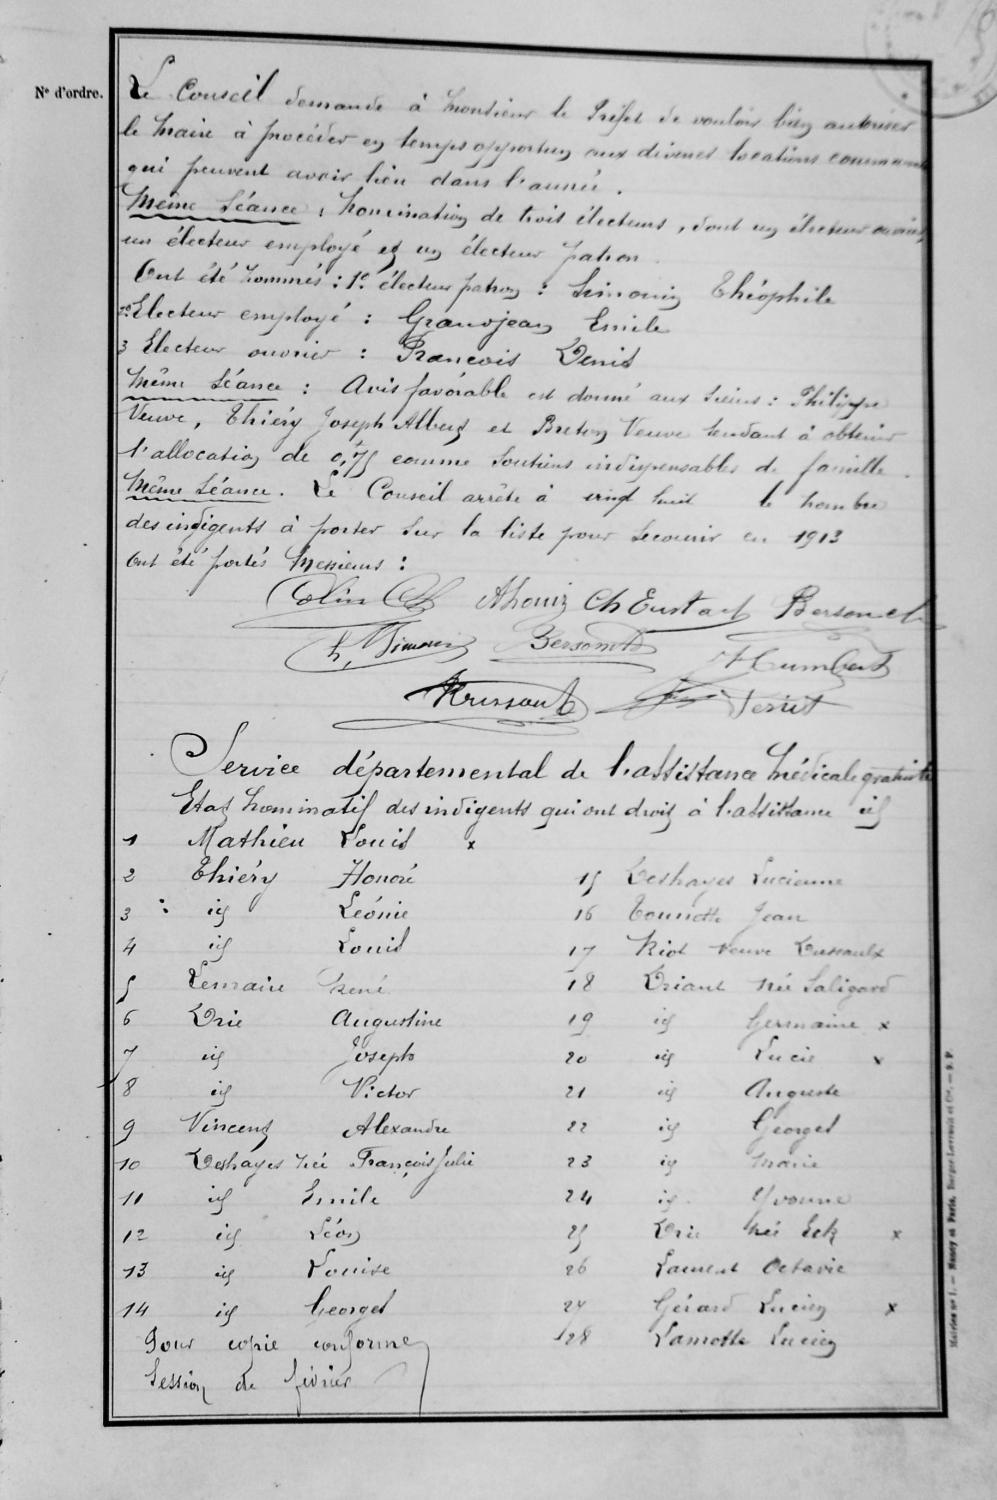 N° d'ordre.
Le Conseil demande à Monsieur le Préfet de vouloir bien autoriser
le Maire à procéder en temps opportun aux diverses locations communales
qui peuvent avoir lieu dans l'année.
Même Séance : Nomination de trois électeurs, dont un électeur ouvrier,
un électeur employé et un électeur patron.
Ont été nommés : 1° électeur patron : Simonin Théophile
2° Electeur employé : Grandjean Emile
3 Electeur ouvrier : François Denis
Même Séance : Avis favorable est donné aux sieurs : Philippe
Veuve, Thiéry Joseph Albert et Breton Veuve tendant à obtenir
l'allocation de 0,75 comme soutiens indispensables de famille.
Même Séance. Le Conseil arrête à vingt huit le nombre
des indigents à porter sur la liste pour secourir en 1913
Ont été portés Messieurs :
Colin Ch Ch Eustach Bersonet
Simonin Humbert
Service départemental de l'assistance médicale gratuite
Etat nominatif des indigents qui ont droit à l'assistance id
1 Mathieu Louis x
2 Thiéry Honoré 15 Deshayes Lucienne
3 : id Léonie 16 Jean
4 id Louis 17 Riot veuve Dussaulx
5 Lemaire René 18 Driant née Saligard
6 Drie Augustine 19 id Germaine x
7 id Joseph 20 id Lucie x
8 id Victor 21 id Auguste
9 Vincent Alexandre 22 id Georges
10 Deshayes née François Julie 23 id Marie
11 id Emile 24 id Yvonne
12 id Léon 25 Drie née Eck x
13 id Louise 26 Laurent Octavie
14 id Georges 27 Gérard Lucien x
Pour copie conforme 28 Lamotte Lucien
Session de février
Mairies n° 1. — Nancy et Paris. Berger-Levrault et Cie. — 9. P.